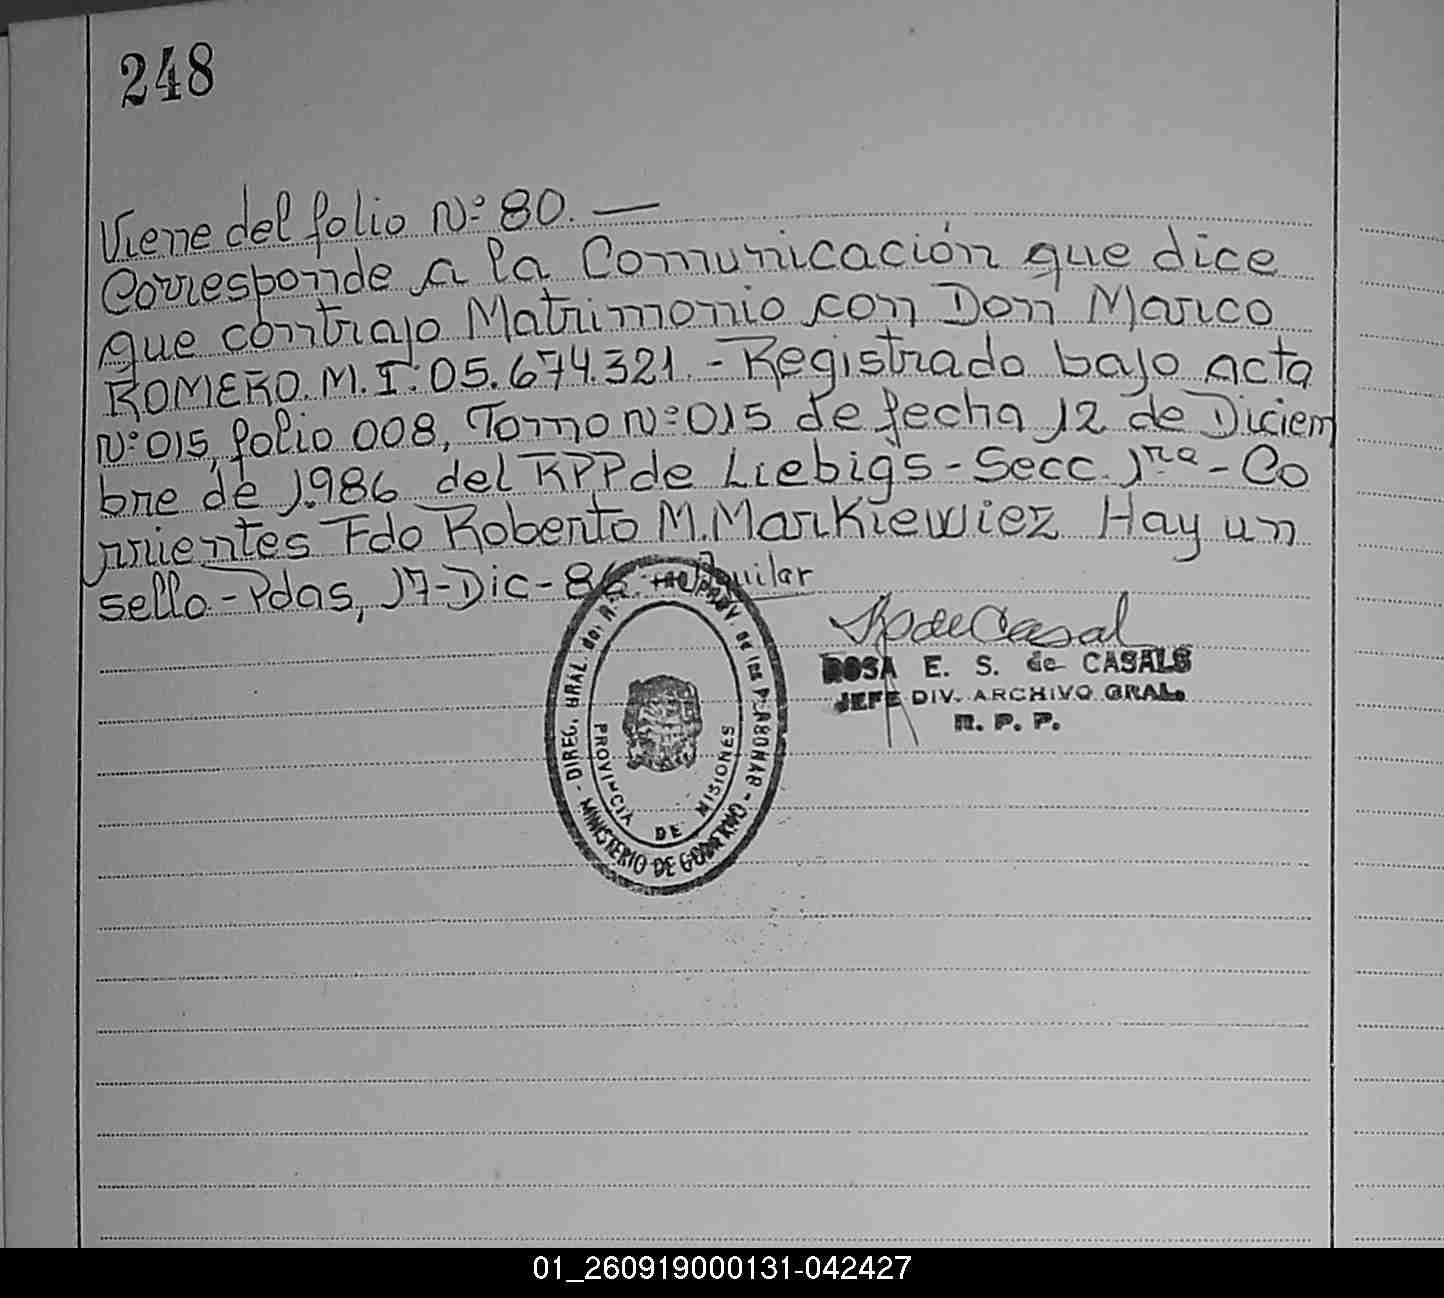 248
Viene del folio Nº 80. —
Corresponde a la Comunicación que dice
que contrajo Matrimonio con Don Marco
ROMERO. M.I. 05.674.321. - Registrado bajo acta
Nº 015, folio 008, Tomo Nº 015 de fecha 12 de Diciem
bre de 1.986 del RPP de Liebig's - Secc. 1ra - Co
rrientes Fdo Roberto M. Markiewiez Hay un
sello. - Pdas, 17-Dic-86. Aguilar
ROSA E. S. de CASALS
JEFE DIV. ARCHIVO GRAL.
R. P. P.
DIREC. GRAL. del PROV. de las PERSONAS - MINISTERIO DE GOBIERNO
PROVINCIA DE MISIONES
01_260919000131-042427